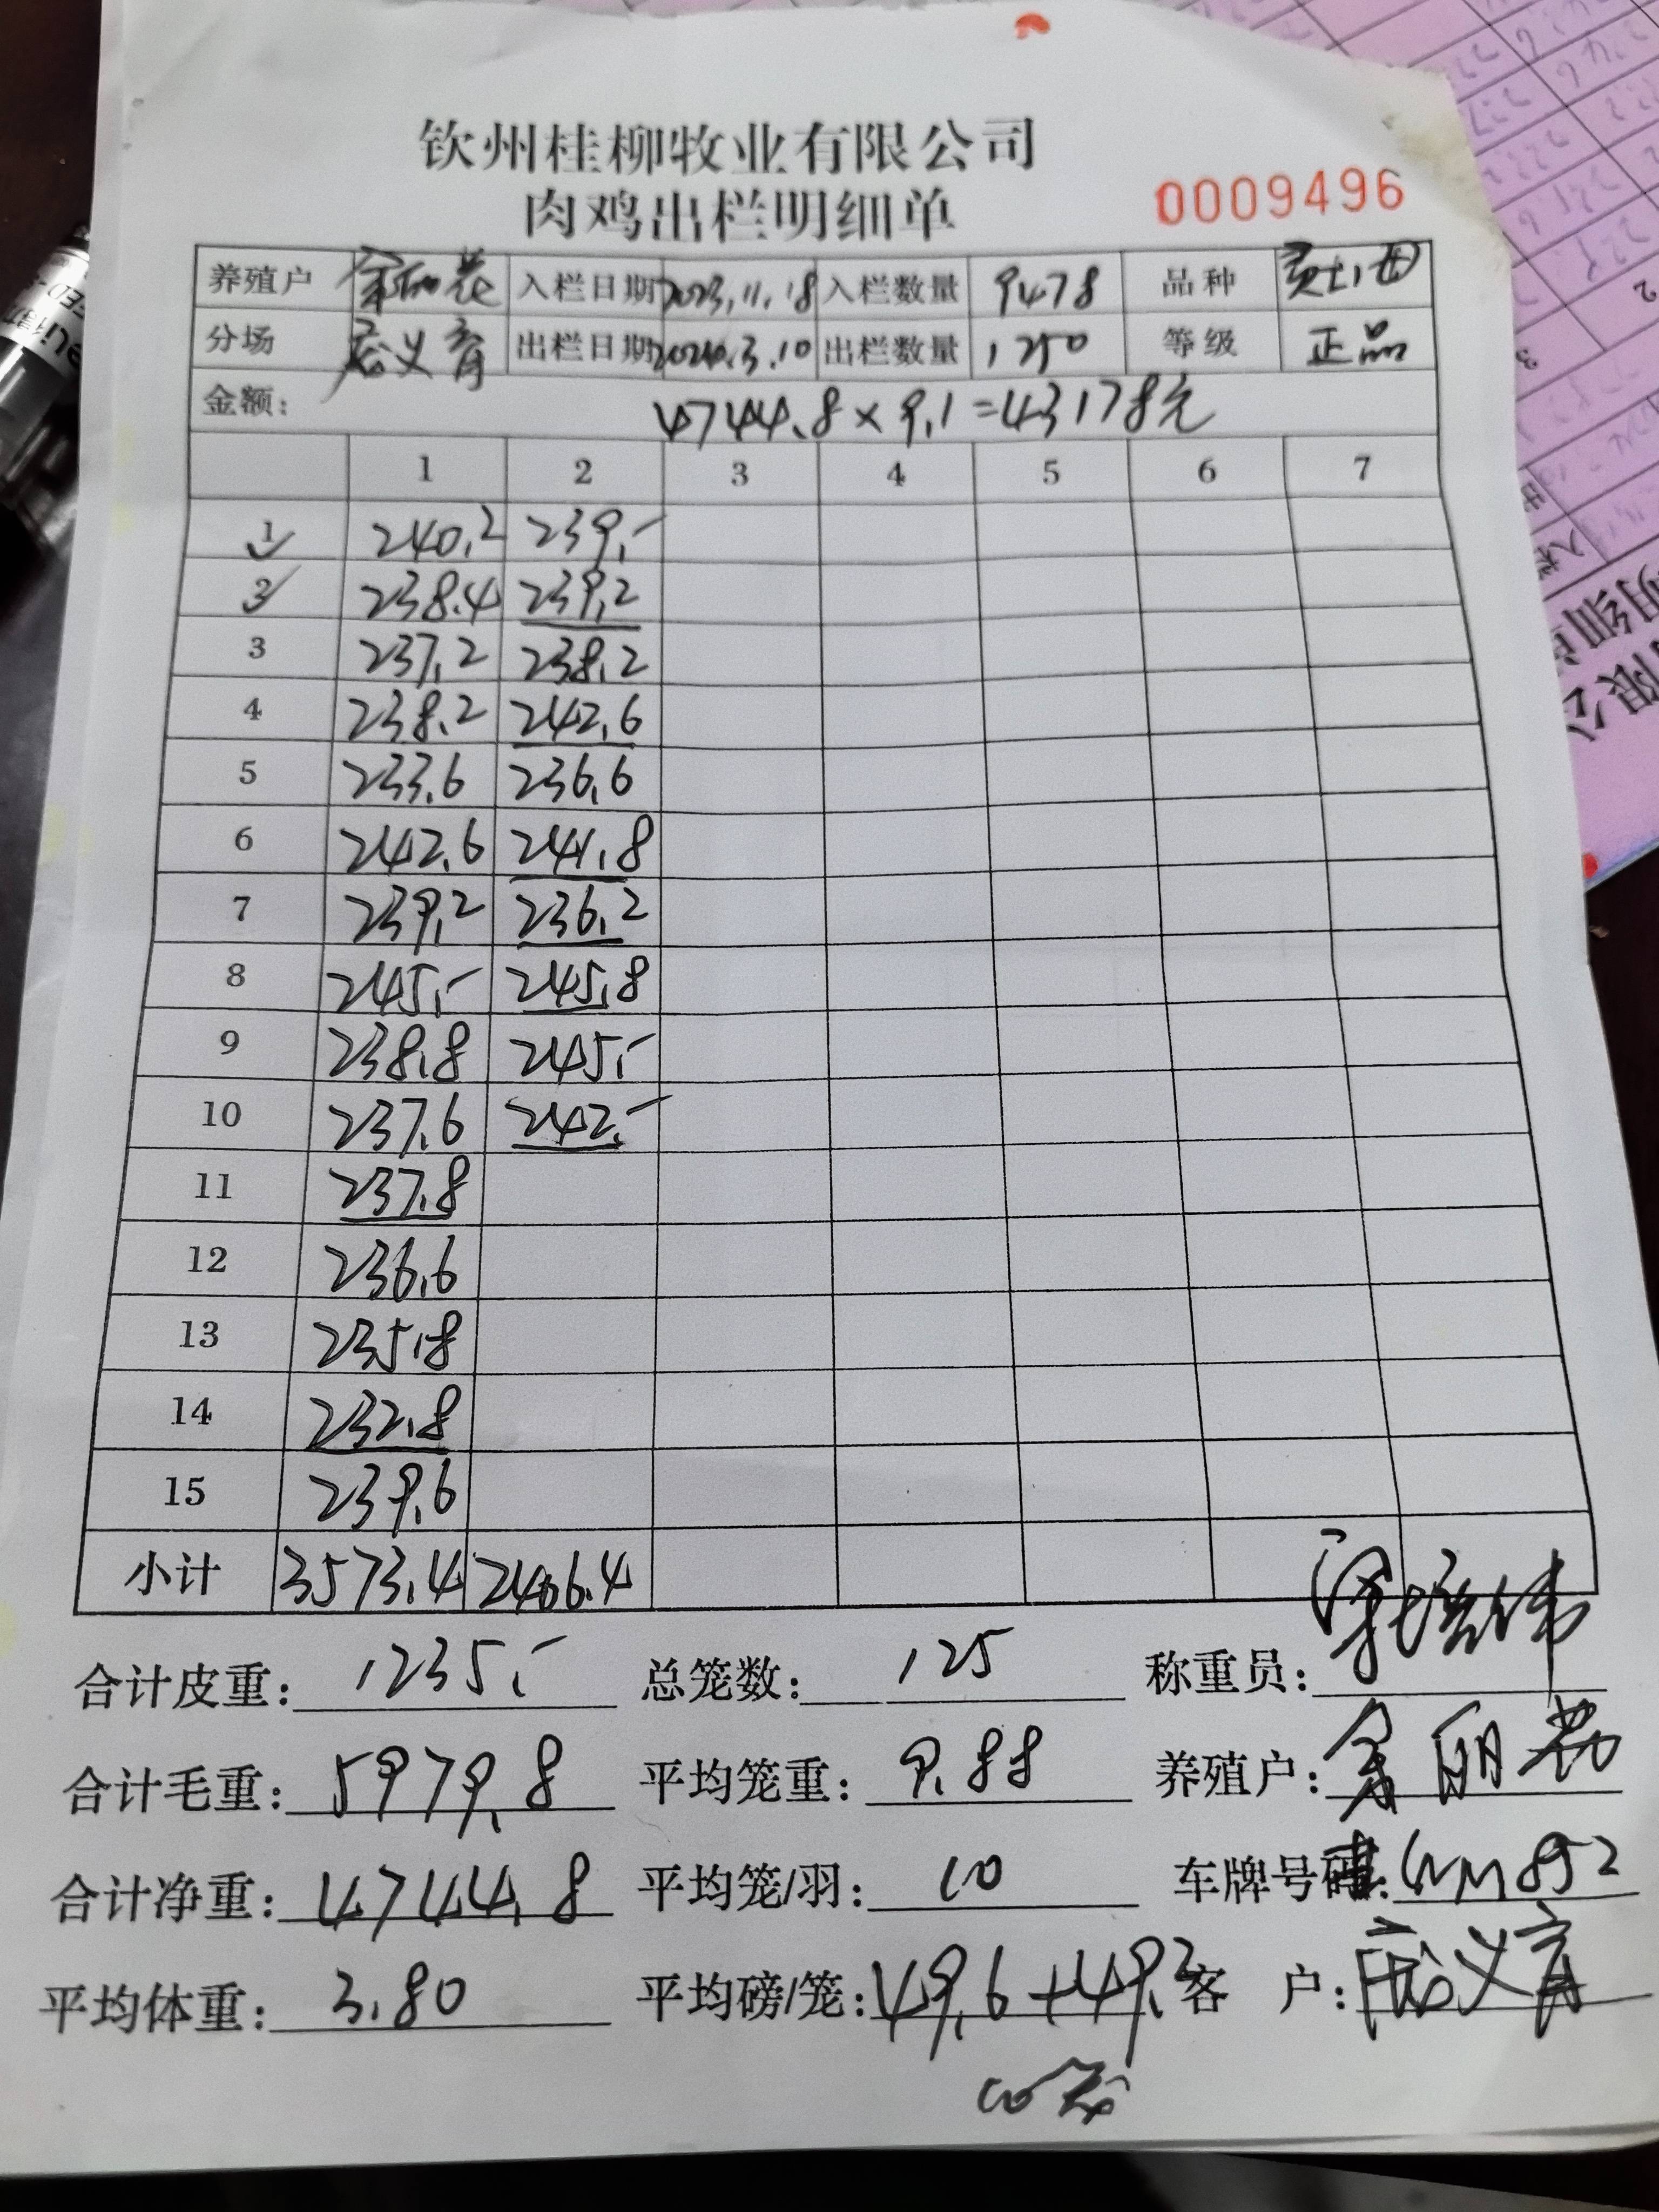 钦州桂柳牧业有限公司
肉鸡出栏明细单
0009496
养殖户 余丽芳 入栏日期 2023.11.18 入栏数量 9478 品种
分场 义育 出栏日期 2024.3.10 出栏数量 1250 等级 正品
金额: 4744.8×9.1=43178元
1 2 3 4 5 6 7
1 240.2 239.-
2 238.4 239.2
3 237.2 238.2
4 238.2 242.6
5 233.6 236.6
6 242.6 241.8
7 239.2 236.2
8 245.- 245.8
9 238.8 245.-
10 237.6 242.-
11 237.8
12 236.6
13 235.8
14 232.8
15 239.6
小计 3573.4 2406.4
合计皮重: 1235.- 总笼数: 125 称重员:
合计毛重: 5979.8 平均笼重: 9.88 养殖户: 余丽芳
合计净重: 4744.8 平均笼/羽: 10 车牌号码: WM852
平均体重: 3.80 平均磅/笼: 49.6+49.2 客 户: 义育